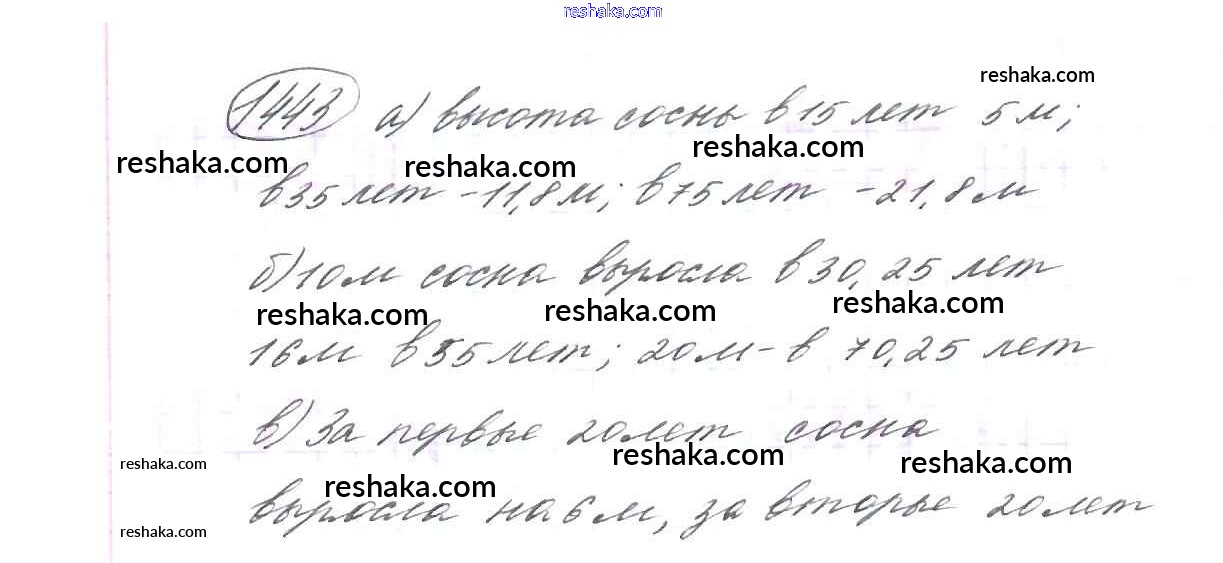 reshaka.com
reshaka.com
1443 а) высота сосны в 15 лет 5 м;
reshaka.com reshaka.com reshaka.com
в 35 лет - 11,8 м; в 75 лет - 21,8 м
б) 10 м сосна выросла в 30,25 лет
reshaka.com reshaka.com reshaka.com
16 м в 55 лет; 20 м - в 70,25 лет
в) За первые 20 лет сосна
reshaka.com reshaka.com reshaka.com
reshaka.com
выросла на 6 м, за вторые 20 лет
reshaka.com